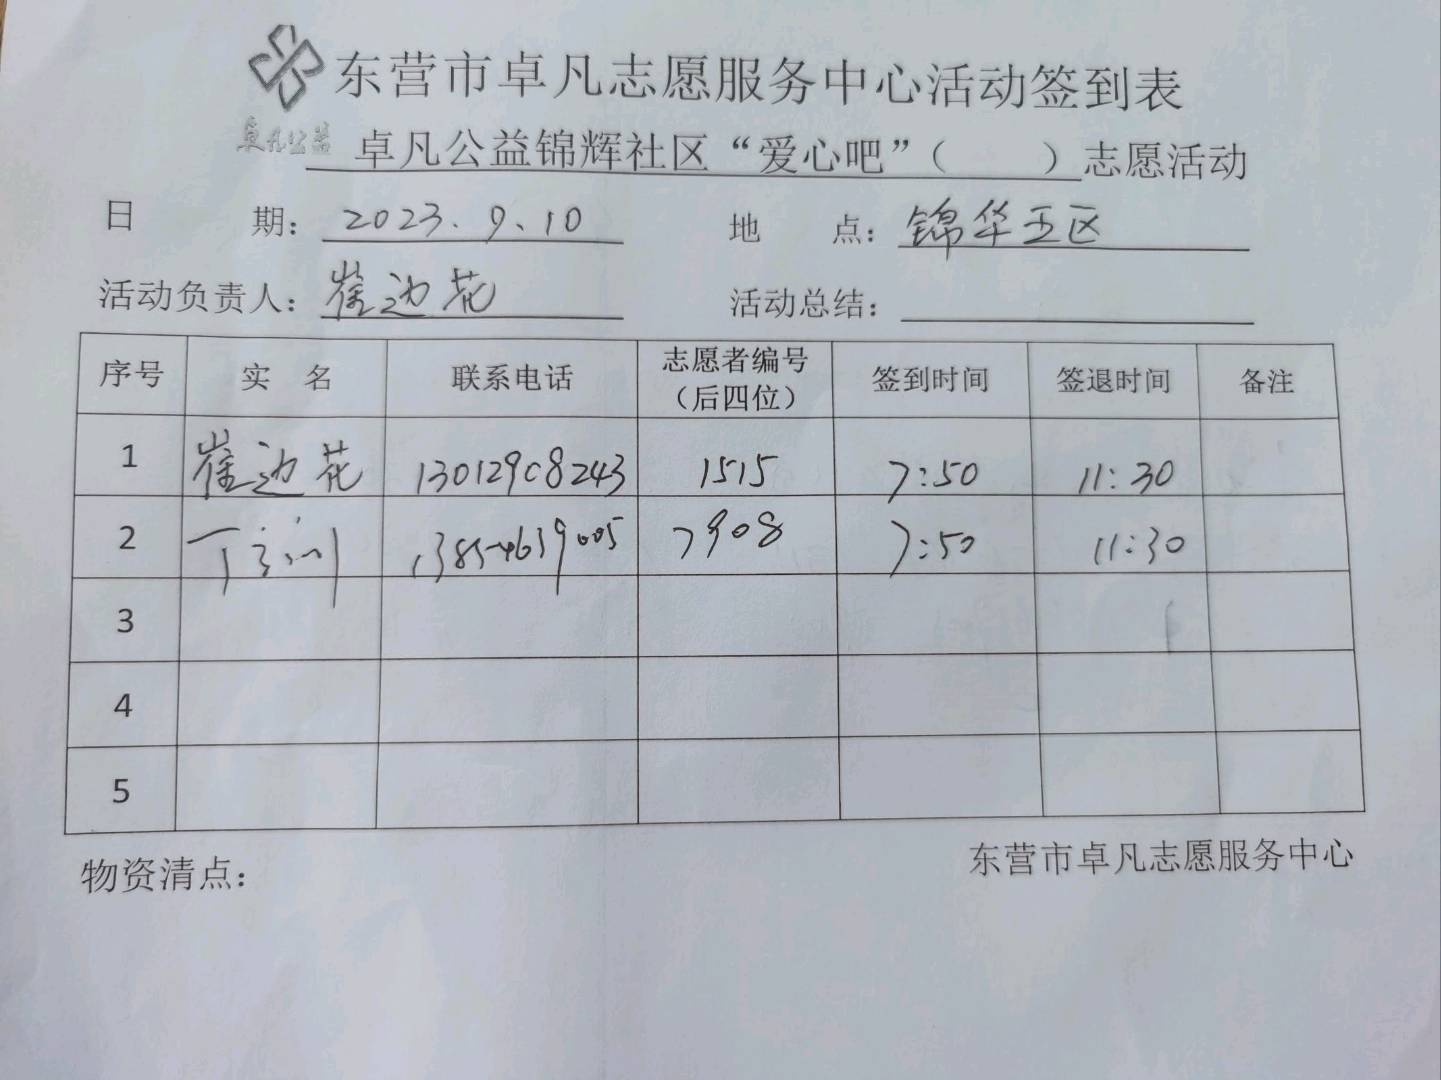 东营市卓凡志愿服务中心活动签到表
卓凡公益
卓凡公益锦辉社区“爱心吧”（　　）志愿活动
日　　期：2023.9.10　　地　　点：锦华五区
活动负责人：崔边花　　活动总结：
序号　实　名　联系电话　志愿者编号（后四位）　签到时间　签退时间　备注
1　崔边花　13012908243　1515　7:50　11:30
2　丁　7908　7:50　11:30
3
4
5
物资清点：　　东营市卓凡志愿服务中心